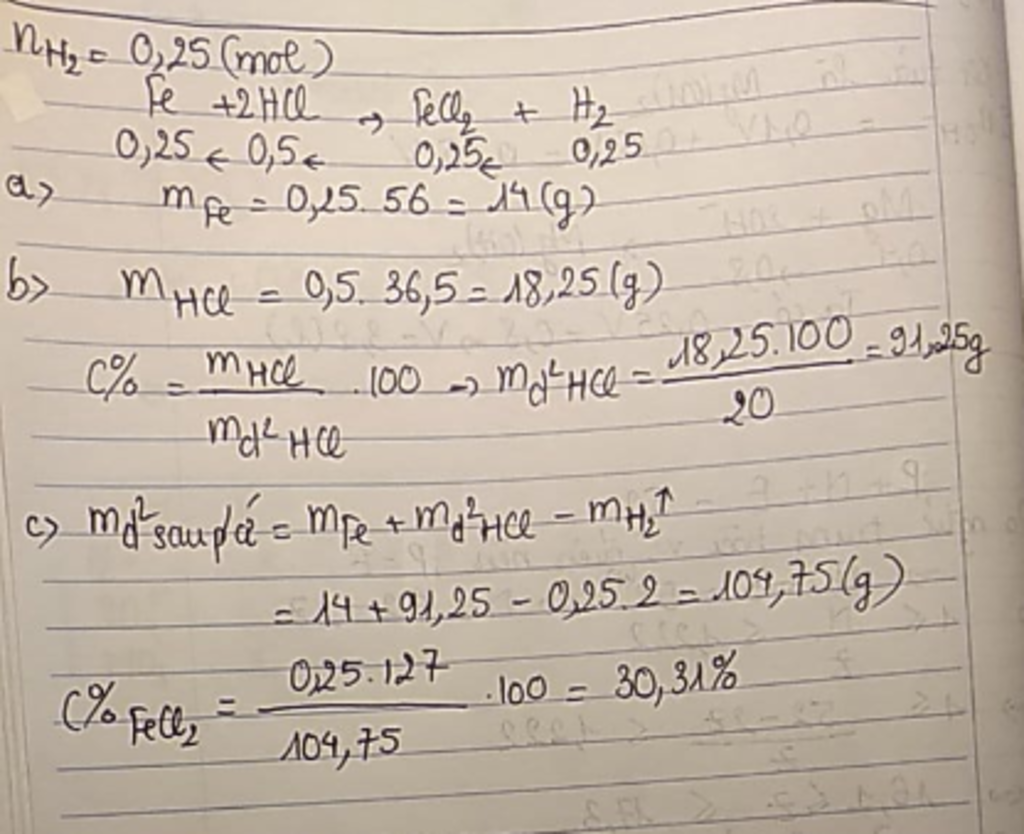 nH₂ = 0,25 (mol)
Fe + 2HCl → FeCl₂ + H₂
0,25 ← 0,5 ← 0,25 ← 0,25
a> mFe = 0,25. 56 = 14 (g)
b> mHCl = 0,5. 36,5 = 18,25 (g)
C% = mHCl / md²HCl .100 → md²HCl = 18,25.100 / 20 = 91,25g
c> md² sau pứ = mFe + md²HCl - mH₂↑
= 14 + 91,25 - 0,25.2 = 104,75 (g)
C% FeCl₂ = 0,25.127 / 104,75 .100 = 30,31%